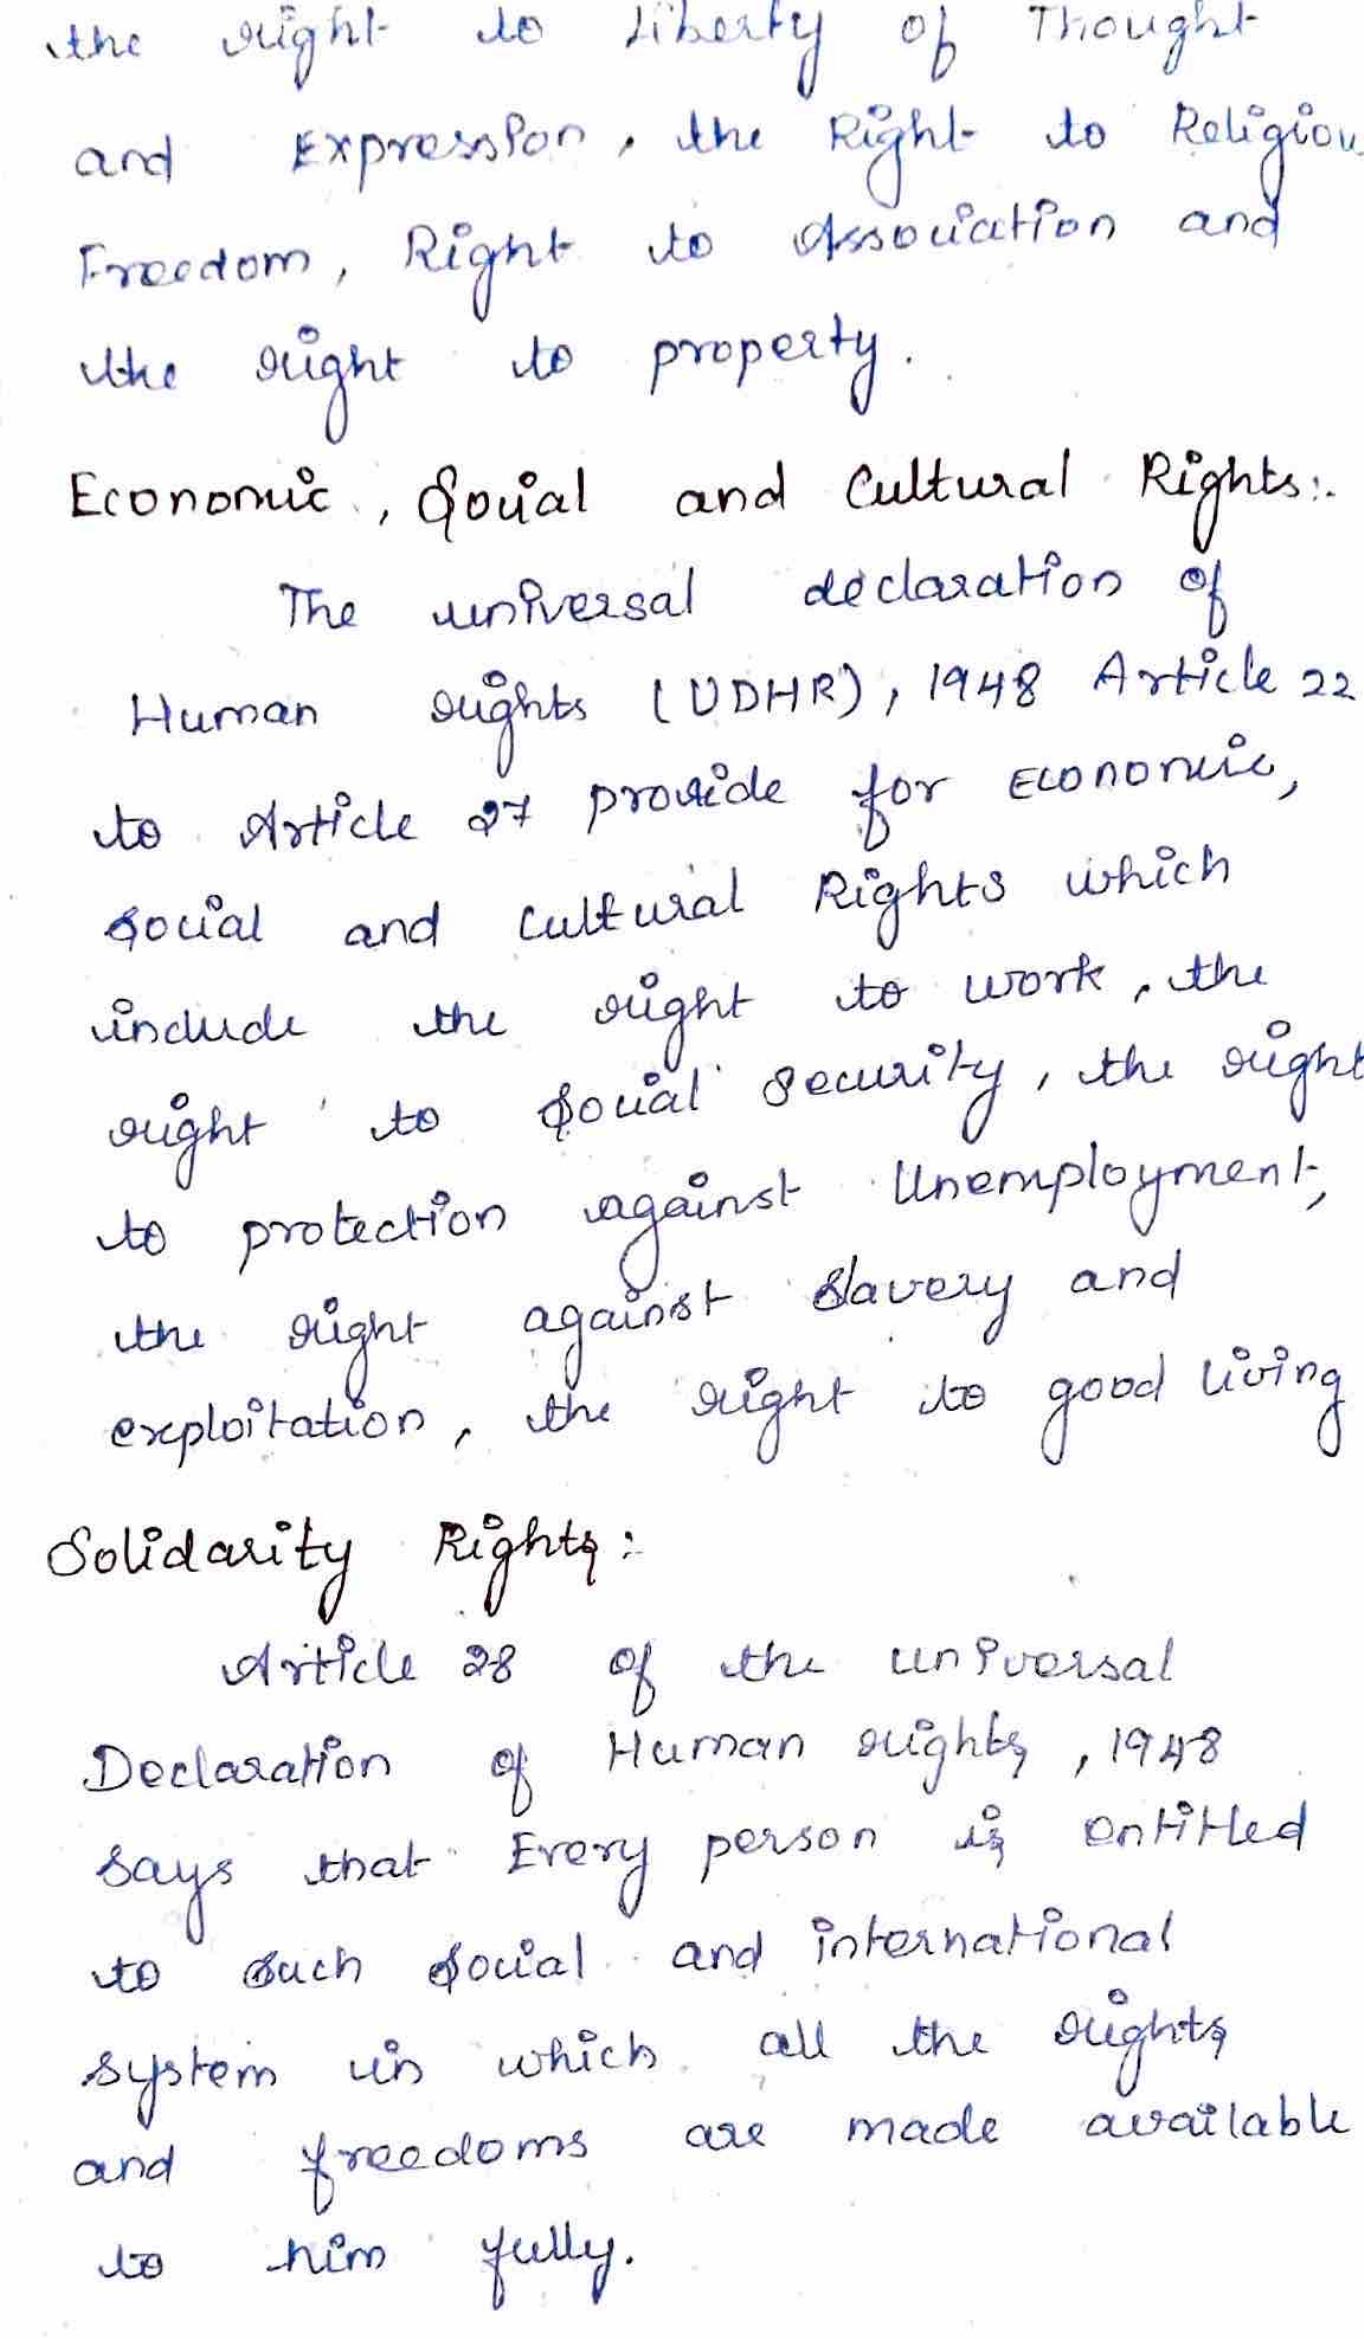 the right to Liberty of Thought
and Expression, the Right to Religiou
Freedom, Right to Association and
the right to property.
Economic, Social and Cultural Rights:
The universal declaration of
Human rights (UDHR), 1948 Article 22
to Article 27 provide for Economic,
social and cultural Rights which
include the right to work, the
right to social security, the right
to protection against Unemployment,
the right against slavery and
exploitation, the right to good living
Solidarity Rights:
Article 28 of the universal
Declaration of Human rights, 1948
says that Every person is entitled
to such social and international
system in which all the rights
and freedoms are made available
to him fully.